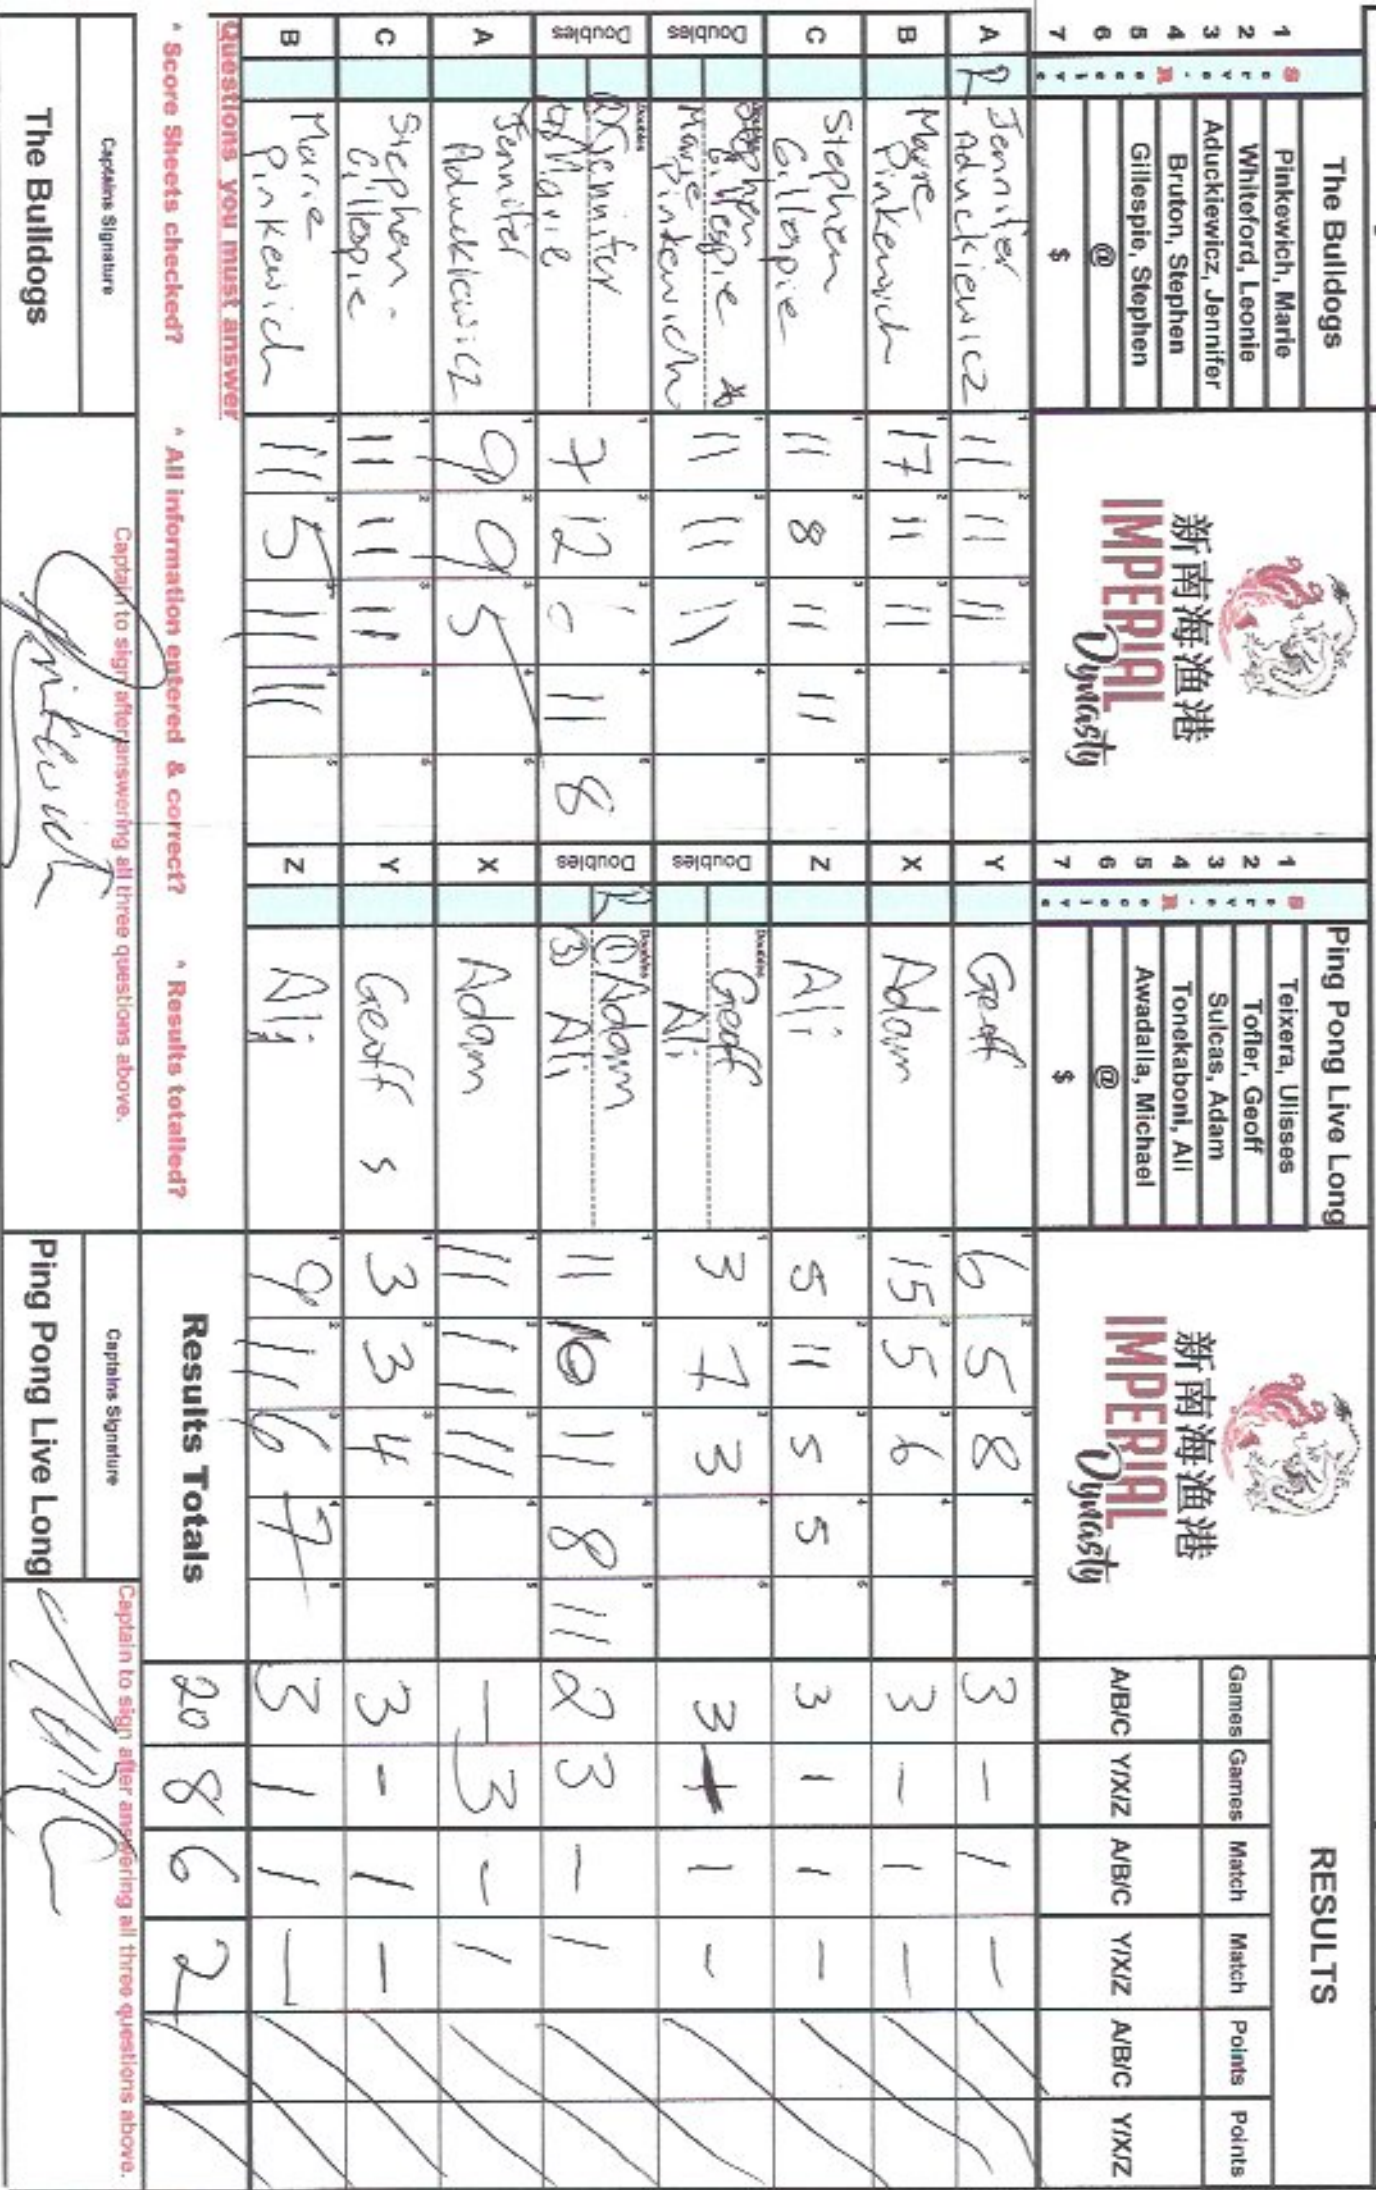 The Bulldogs
S e r v e - R e c e i v e
1 Pinkewich, Marie
2 Whiteford, Leonie
3 Aduckiewicz, Jennifer
4 Bruton, Stephen
5 Gillespie, Stephen
6 @
7 $
新南海渔港
IMPERIAL
Dynasty
Ping Pong Live Long
1 Teixera, Ulisses
2 Tofler, Geoff
3 Sulcas, Adam
4 Tonekaboni, Ali
5 Awadalla, Michael
6 @
7 $
新南海渔港
IMPERIAL
Dynasty
RESULTS
Games Games Match Match Points Points
A/B/C Y/X/Z A/B/C Y/X/Z A/B/C Y/X/Z
A R Jennifer Aduckiewicz 11 11 11 Y Geoff 6 5 8 3 - 1 -
B Marie Pinkewich 17 11 11 X Adam 15 5 6 3 - 1 -
C Stephen Gillespie 11 8 11 11 Z Ali 5 11 5 5 3 1 1 -
Doubles Stephen Gillespie Marie Pinkewich 11 11 11 Doubles Geoff Ali 3 7 3 3 - 1 -
Doubles Jennifer Marie 7 12 6 11 8 Doubles R ① Adam ③ Ali 11 10 11 8 11 2 3 - 1
A Jennifer Aduckiewicz 9 9 5 X Adam 11 11 11 - 3 - 1
C Stephen Gillespie 11 11 11 Y Geoff s 3 3 4 3 - 1 -
B Marie Pinkewich 11 5 11 11 Z Ali 9 11 6 7 3 1 1 -
Questions you must answer
^ Score Sheets checked? ^ All information entered & correct? ^ Results totalled?
Results Totals 20 8 6 2
Captains Signature
Captain to sign after answering all three questions above.
The Bulldogs
Pinkewich
Captains Signature
Captain to sign after answering all three questions above.
Ping Pong Live Long